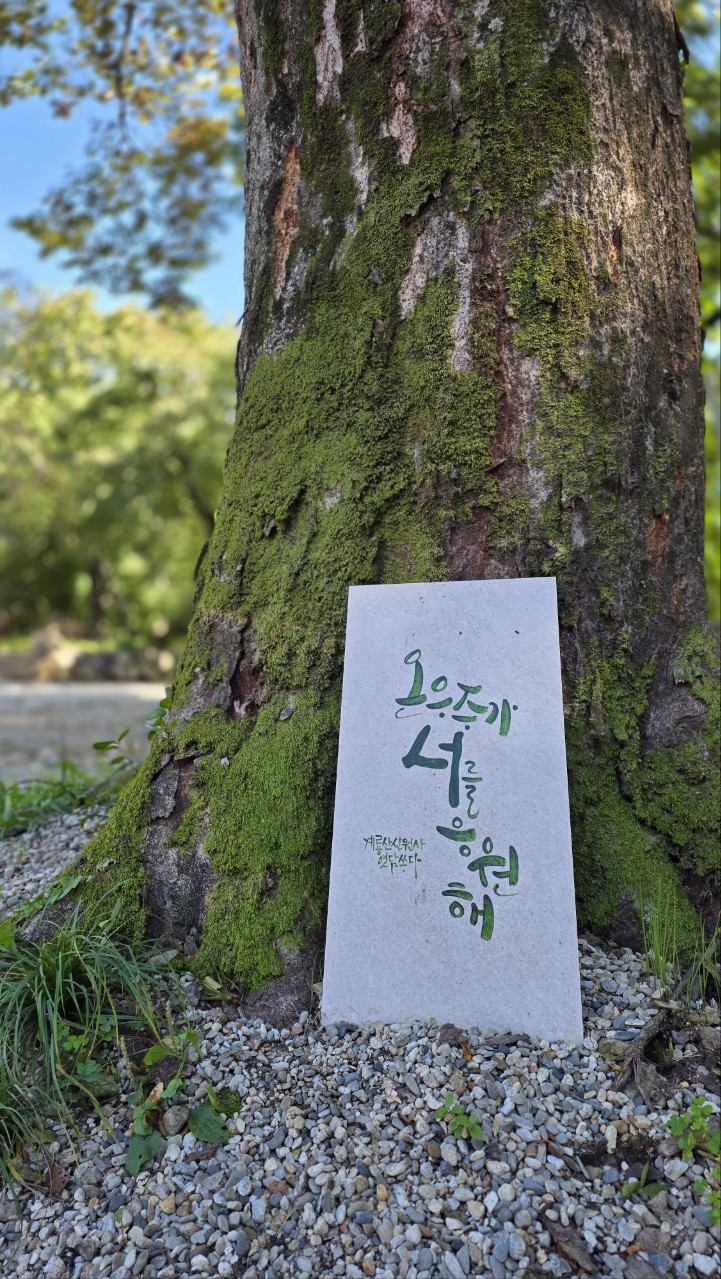 온우주가
너를
응원
해
계룡산신원사
쓰다